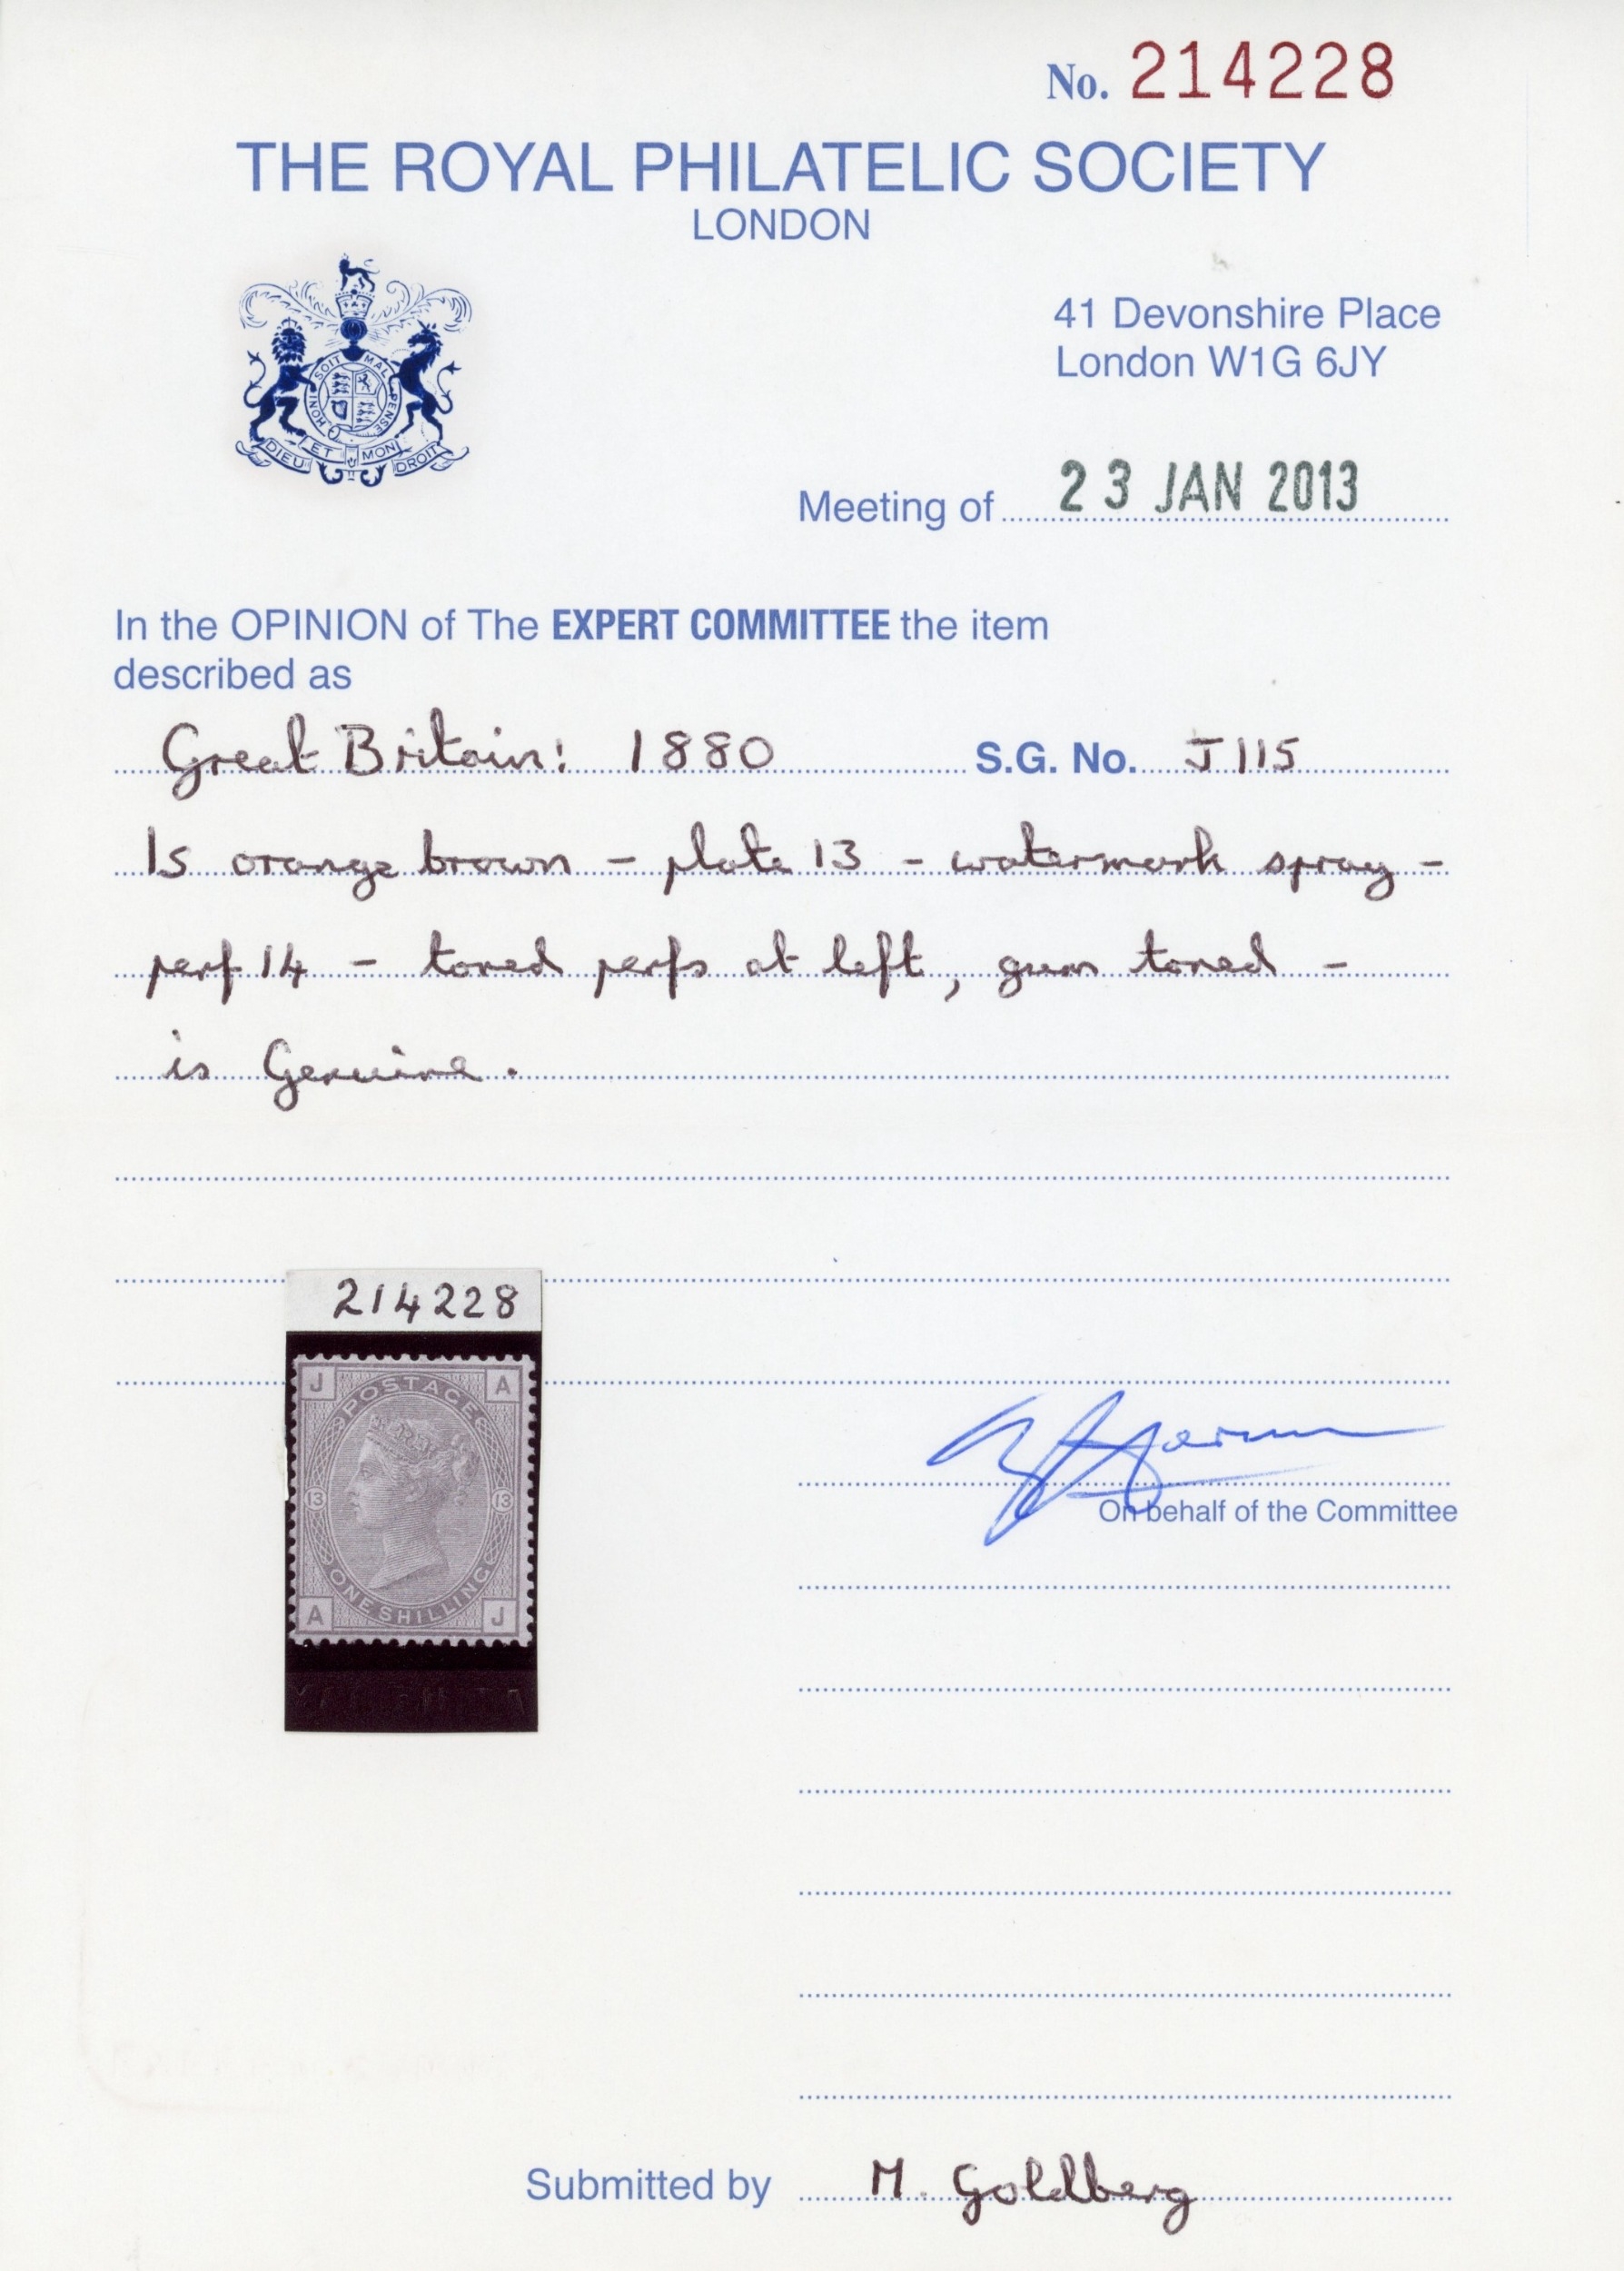 No. 214228
THE ROYAL PHILATELIC SOCIETY
LONDON
HONI SOIT MAL PENSE
DIEU ET MON DROIT
41 Devonshire Place
London W1G 6JY
Meeting of 23 JAN 2013
In the OPINION of The EXPERT COMMITTEE the item
described as
Great Britain: 1880 S.G. No. J115
1s orange brown - plate 13 - watermark spray -
perf 14 - toned perfs at left, gum toned -
is Genuine.
214228
J POSTAGE A
13 13
ONE SHILLING
A J
On behalf of the Committee
Submitted by M. Goldberg